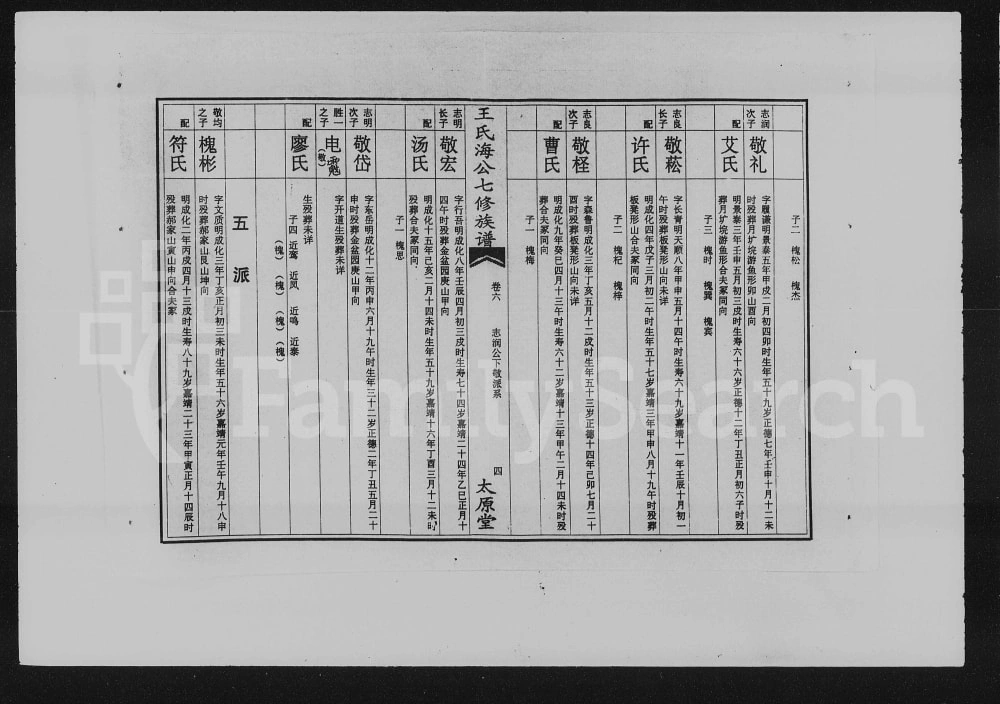 子二 槐松 槐杰
志润
次子
敬礼
字履谦明景泰五年甲戌二月初四卯时生年五十九岁正德七年壬申十月十二未
时殁葬月圹垸游鱼形卯山酉向
配
艾氏
明景泰三年壬申五月初三戌时生寿六十六岁正德十二年丁丑正月初六子时殁
葬月圹垸游鱼形合夫冢同向
子三 槐时 槐巽 槐宾
志良
长子
敬菘
字长青明天顺八年甲申五月十四午时生寿六十九岁嘉靖十一年壬辰十月初一
午时殁葬板凳形山向未详
配
许氏
明成化四年戊子三月初二午时生年五十七岁嘉靖三年甲申八月十九午时殁葬
板凳形山合夫冢同向
子二 槐杞 槐梓
志良
次子
敬柽
字森鲁明成化三年丁亥五月十二戌时生年五十三岁正德十四年己卯七月二十
酉时殁葬板凳形山向未详
配
曹氏
明成化九年癸巳四月十三午时生寿六十二岁嘉靖十三年甲午二月十四未时殁
葬合夫冢同向
子一 槐梅
王氏海公七修族谱
卷六 志润公下敬派系 四
太原堂
志明
长子
敬宏
字行吾明成化八年壬辰四月初三戌时生寿七十四岁嘉靖二十四年乙巳正月十
四午时殁葬金盆园庚山甲向
配
汤氏
明成化十五年己亥二月十四未时生年五十九岁嘉靖十六年丁酉三月十二未时
殁葬合夫冢同向
子一 槐思
志明
次子
敬岱
字东岳明成化十二年丙申六月十九午时生年三十二岁正德二年丁丑五月二十
申时殁葬金盆园庚山甲向
胜一
之子
电
(敬)
字开道生殁葬未详
配
廖氏
生殁葬未详
子四 近鸾 近凤 近鸣 近泰
(槐) (槐) (槐) (槐)
五派
敬均
之子
槐彬
字文质明成化三年丁亥正月初三未时生年五十六岁嘉靖元年壬午九月十八申
时殁葬郝家山艮山坤向
配
符氏
明成化二年丙戌四月十三戌时生寿八十九岁嘉靖二十三年甲寅正月十四辰时
殁葬郝家山寅山申向合夫冢
FamilySearch